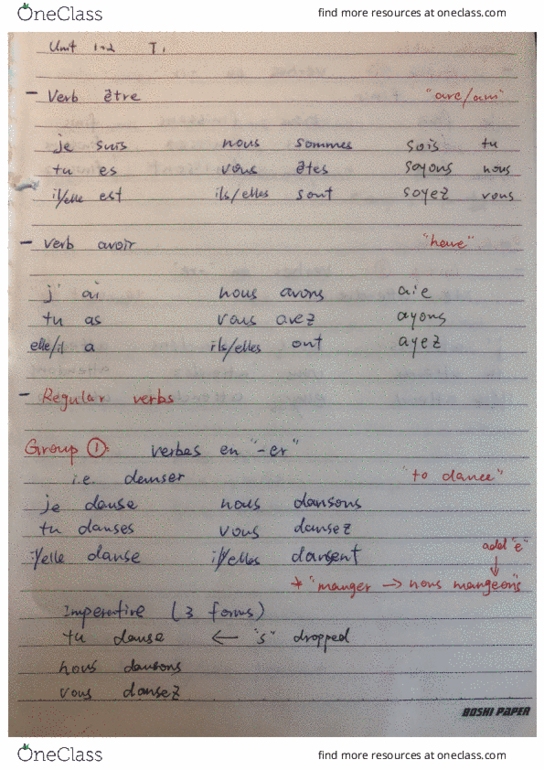 OneClass find more resources at oneclass.com
Unit 1+2 T1
- Verb être "are/am"
je suis nous sommes sois tu
tu es vous êtes soyons nous
il/elle est ils/elles sont soyez vous
- Verb avoir "have"
j' ai nous avons aie
tu as vous avez ayons
elle/il a ils/elles ont ayez
- Regular verbs
Group ①: verbes en "-er"
i.e. danser "to dance"
je danse nous dansons
tu danses vous dansez
il/elle danse il/elles dansent
add "e"
* "manger → nous mangeons"
Imperative (3 forms)
tu danse ← "s" dropped
nous dansons
vous dansez
BOSHI PAPER
OneClass find more resources at oneclass.com